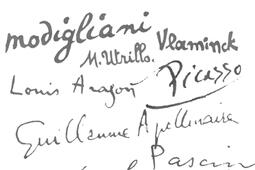 modigliani
M. Utrillo. Vlaminck
Louis Aragon Picasso
Guillaume Apollinaire
Pascin